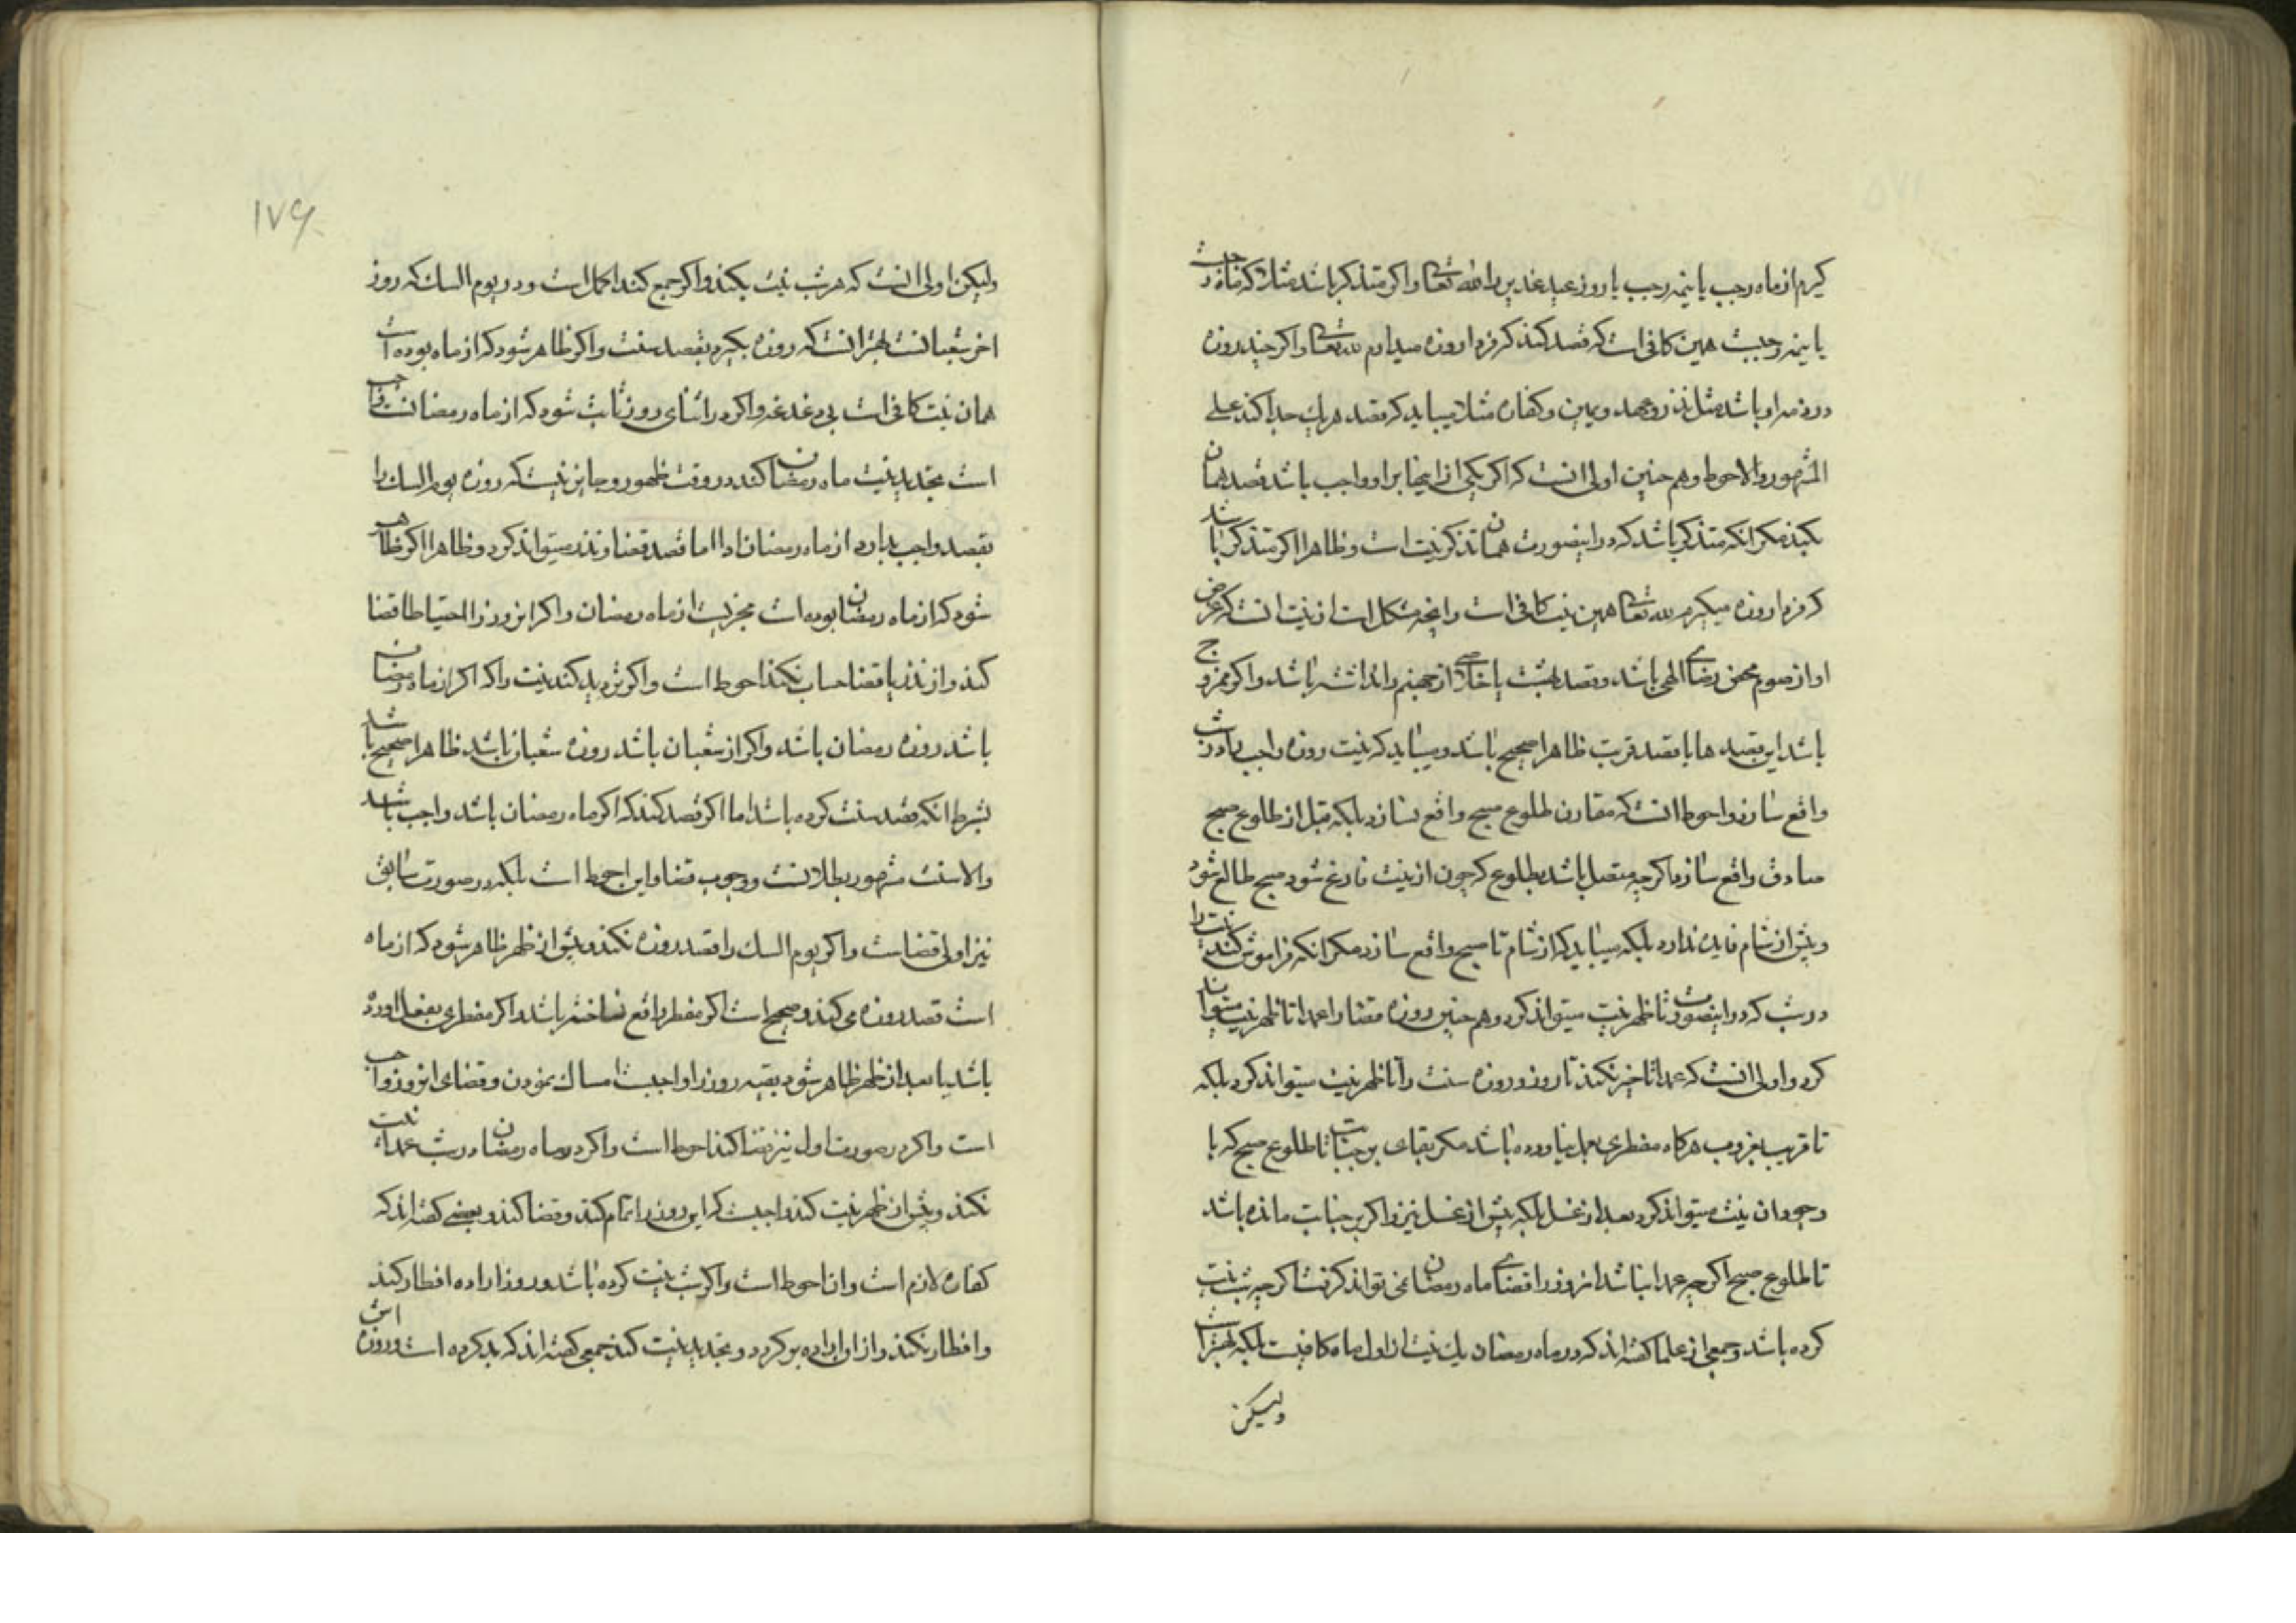 کیرم از ماه رجب یا نیمه رجب یا روز عید غدیر را لله تعالی واکر متذکر باشد مثلا که ماه رجبست
یا نیمه رجبست همین کافی است که قصد کند که فردا روزه میدارم لله تعالی واکر چند روزه
در ذمه او باشد مثل نذر و عهد و یمین و کفاره مثلا میباید که قصد هر یک جدا کند علی
المشهور والاحوط وهم چنین اولی انست که اکر یکی از اینها بر او واجب باشد قصد همان
بکند مکر انکه متذکر باشد که در اینصورت همان تذکر نیت است و ظاهرا اکر متذکر باشد
که فردا روزه میکیرم لله تعالی همین نیت کافی است وانچه مشکل است از نیت انست که غرض
او از صوم محض رضای الهی باشد وقصد بهشت یا خلاصی از جهنم را نداشته باشد واکر ممزوج
باشد این قصد ها با قصد قربت ظاهرا صحیح باشد و میباید که نیت روزه واجب را در شب
واقع سازد واحوط انست که مقارن طلوع صبح واقع نسازد بلکه قبل از طلوع صبح
صادق واقع سازد اکر چه متصل باشد بطلوع که چون از نیت فارغ شود صبح طالع شود
وپیش از شام فایده ندارد بلکه میباید که از شام تا صبح واقع سازد مکر انکه فراموش کند نیت را
در شب که در اینصورت تا ظهر نیت میتواند کرد وهم چنین روزه قضا را عمدا تا ظهر نیت میتواند
کرد و اولی انست که عمدا تاخیر نکند تا روز و روزه سنت را تا ظهر نیت میتواند کرد بلکه
تا قریب بغروب هرکاه مفطری بعمل نیاورده باشد مکر بقای بر جنابت تا طلوع صبح که با
وجود ان نیت میتواند کرد بعد از غسل بلکه پیش از غسل نیز واکر بر جنابت مانده باشد
تا طلوع صبح اکر چه عمدا نباشد انروز را قضای ماه رمضان نمی تواند کرفت اکر چه شب نیت
کرده باشد وجمعی از علما کفته اند که در ماه رمضان یک نیت از اول ماه کافیست بلکه بهتر است
ولیکن
۱۷۶
ولیکن اولی انست که هر شب نیت بکند واکر جمع کند اکمل است و در یوم الشک که روز
اخر شعبانست بهتر انست که روزه بکیرد بقصد سنت واکر ظاهر شود که از ماه بوده است
همان نیت کافی است بی دغدغه واکر در اثنای روز ثابت شود که از ماه رمضانست واجب
است تجدید نیت ماه رمضان کند در وقت ظهور و جایز نیست که روزه یوم الشک را
بقصد واجب بدارد از ماه رمضان ادا اما قصد قضا و نذر میتواند کرد و ظاهرا اکر ظاهر
شود که از ماه رمضان بوده است مجزیست از ماه رمضان واکر انروز را احتیاطا قضا
کند و از نذر یا قضا حساب نکند احوط است واکر تردید کند نیت را که اکر از ماه رمضان
باشد روزه رمضان باشد واکر از شعبان باشد روزه شعبان باشد ظاهرا صحیح باشد
بشرط انکه قصد سنت کرده باشد اما اکر قصد کند که اکر ماه رمضان باشد واجب باشد
والا سنت مشهور بطلانست و وجوب قضا واین احوط است بلکه در صورت سابق
نیز اولی قضاست واکر یوم الشک را قصد روزه نکند و پیش از ظهر ظاهر شود که از ماه
است قصد روزه می کند و صحیح است اکر مفطر واقع نساخته باشد واکر مفطری بفعل اورده
باشد یا بعد از ظهر ظاهر شود بقیه روز را واجبست امساک نمودن و قضای انروز واجب
است واکر در صورت اول نیز قضا کند احوط است واکر در ماه رمضان در شب عمدا نیت
نکند و پیش از ظهر نیت کند واجبست که این روز را تمام کند و قضا کند و بعضی کفته اند که
کفاره لازم است وان احوط است واکر شب نیت کرده باشد و روز اراده افطار کند
وافطار نکند و از این اراده بر کردد و تجدید نیت کند جمعی کفته اند که بد کرده است و روزه اش